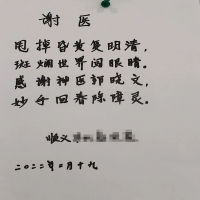 谢医
甩掉昏黄复明清，
斑斓世界阅眼睛。
感谢神医郭晓文，
妙手回春除障灵。
顺义
二〇二二年二月十九